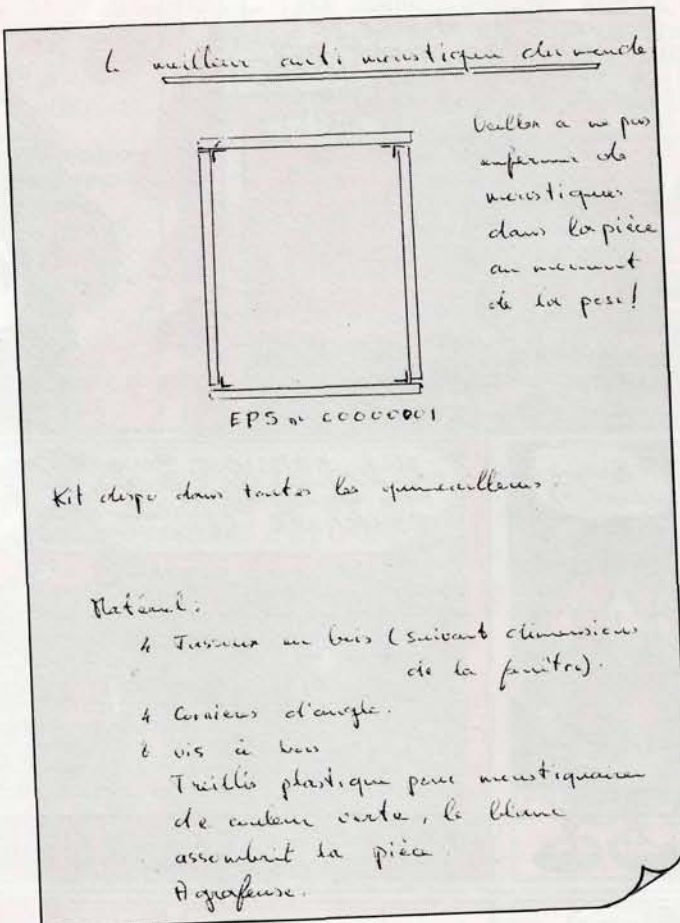 Le meilleur anti moustique du monde
Veillez a ne pas
enfermer de
moustiques
dans la pièce
au moment
de la pose!
EPS n° 00000001
Kit dispo dans toutes les quincailleries.
Matériel:
4 Tasseaux en bois (suivant dimensions
de la fenêtre).
4 Cornières d'angle.
8 vis à bois
Treillis plastique pour moustiquaire
de couleur verte, le blanc
assombrit la pièce.
Agrafeuse.